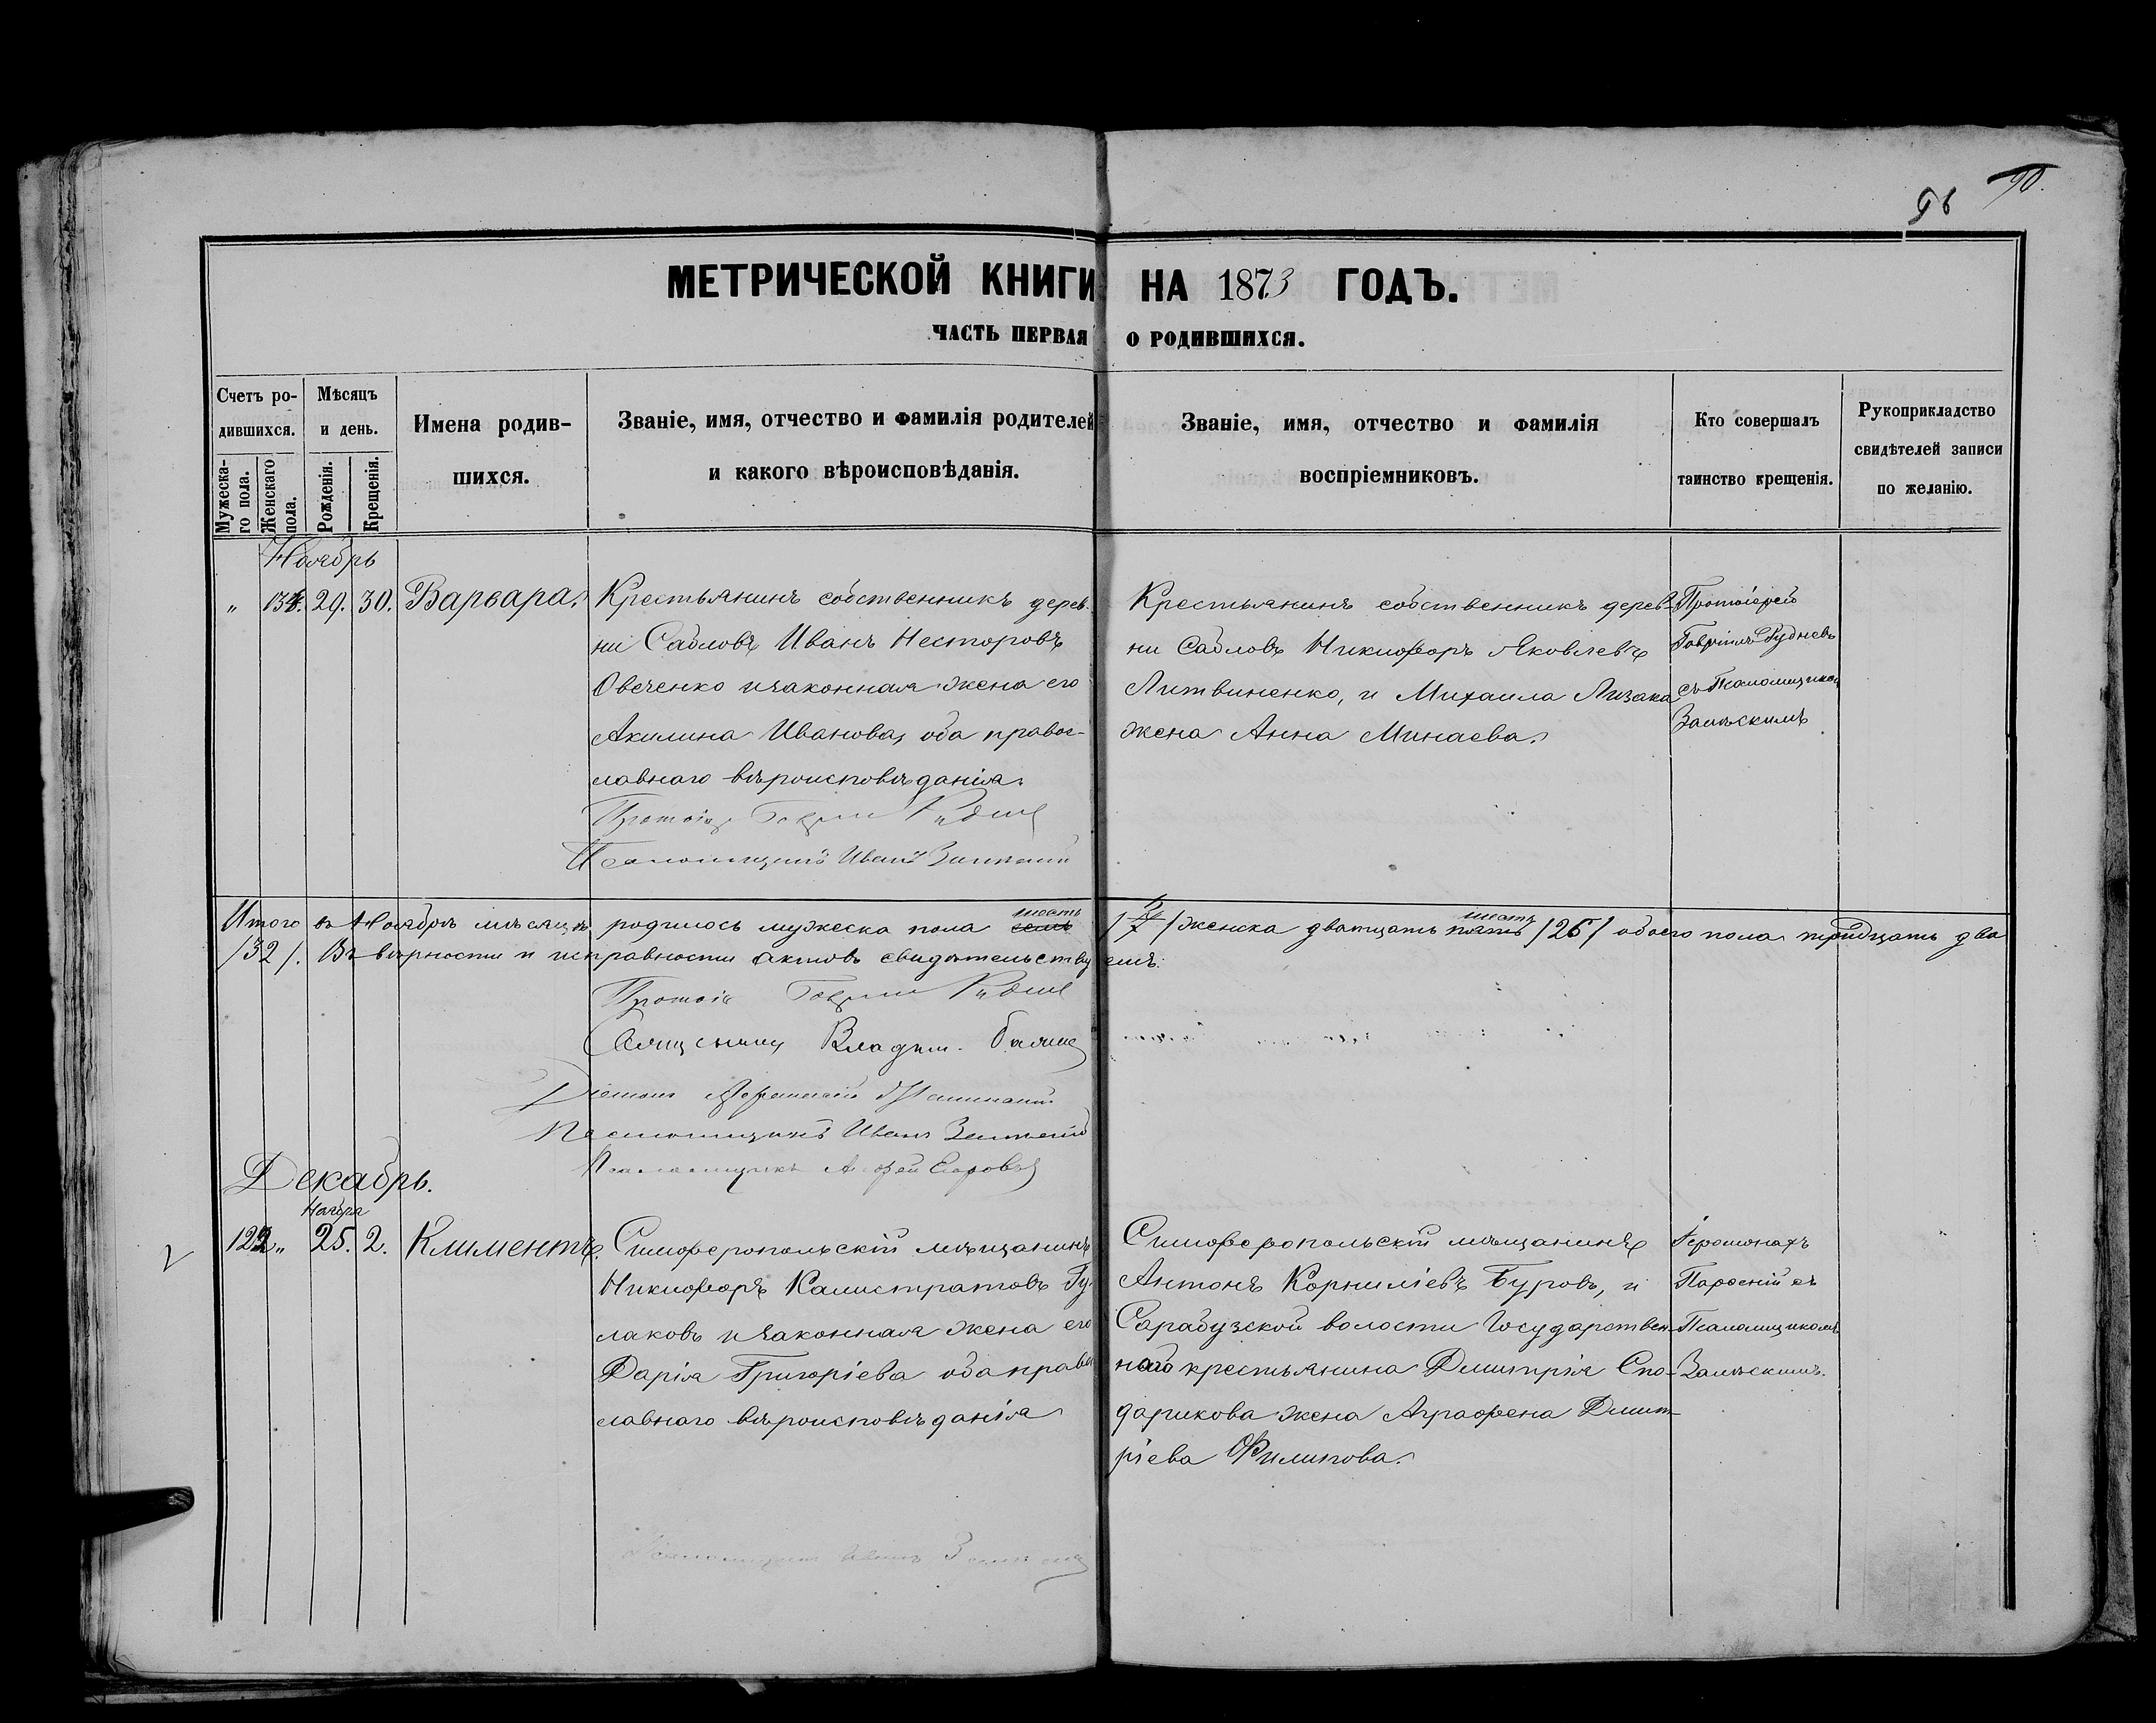 96 90.
МЕТРИЧЕСКОЙ КНИГИ НА 1873 ГОДЪ.
ЧАСТЬ ПЕРВАЯ О РОДИВШИХСЯ.
Счетъ ро-
дившихся.
Мужеска-
го пола.
Женскаго
пола.
Мѣсяцъ
и день.
Рожденія.
Крещенія.
Имена родив-
шихся.
Званіе, имя, отчество и фамилія родителей
и какого вѣроисповѣданія.
Званіе, имя, отчество и фамилія
воспріемниковъ.
Кто совершалъ
таинство крещенія.
Рукоприкладство
свидѣтелей записи
по желанію.
Ноябрь
„ 134. 29. 30. Варвара.
Крестьянинъ собственникъ дерев-
ни Сабловъ Иванъ Несторовъ
Овеченко и законная жена его
Акилина Иванова, оба правос-
лавнаго вѣроисповѣданія.
Крестьянинъ собственникъ дерев-
ни Сабловъ Никифоръ Яковлевъ
Литвиненко, и Михаила Лизака
жена Анна Минаева.
Протоіерей
Гавріилъ Рудневъ
съ Псаломщикомъ
Протоіер Гавріи Рудне
Псаломщикъ Иванъ
Итого въ Ноябрѣ мѣсяцѣ родилось мужеска пола семь шесть /6/ женска дватцать пять шесть /26/ обоего пола тридцать два
/32/. Въ вѣрности и исправности актовъ свидѣтельствуемъ:
Протоіе Гавріи Рудне
Священникъ Владим.
Діаконъ
Псаломщикъ Иванъ
Псаломщикъ
Декабрь.
Ноября
122 „ 25. 2. Климентъ.
Симферопольскій мѣщанинъ
Никифоръ Калистратовъ Гу-
лаковъ и законная жена его
Дарія Григоріева оба правос-
лавнаго вѣроисповѣданія
Симферопольскій мѣщанинъ
Антонъ Корниліевъ Буровъ, и
Сарабузской волости Государствен-
наго крестьянина Димитрія Спо-
дарикова жена Аграфена Дмит-
ріева Филипова.
Іеромонахъ
Парѳеній съ
Псаломщикомъ
Псаломщикъ Иванъ